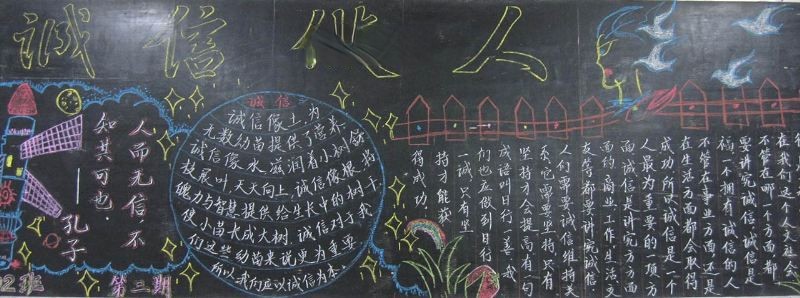 诚信人
人而无信不
知其可也.
——孔子
2班
第三期
诚信
诚信像土,为
无数幼苗提供了营养.
诚信像水,滋润着小树舒
枝展叶,天天向上,诚信像根,将
魄力与智慧提供给生长中的树干,
使小苗长成大树.诚信对于我
们这些幼苗来说更为重要
所以我们应以诚信为本.
在我们这个人文社会
不管在哪一个方面都
要讲究诚信,诚信是
福一个拥有诚信的人
不管在事业方面还是
在生活方面都会取得
成功.所以诚信是一个
人最为重要的一项方
面诚信是讲究方方面
面的商业工作生活交
友等都要讲究诚信.
人们需要诚信维持关
系,它需要坚持只有
坚持才会提高有句
成语叫日行一善,我
们也应做到日行
一诚,只有坚
持才能获
得成功.